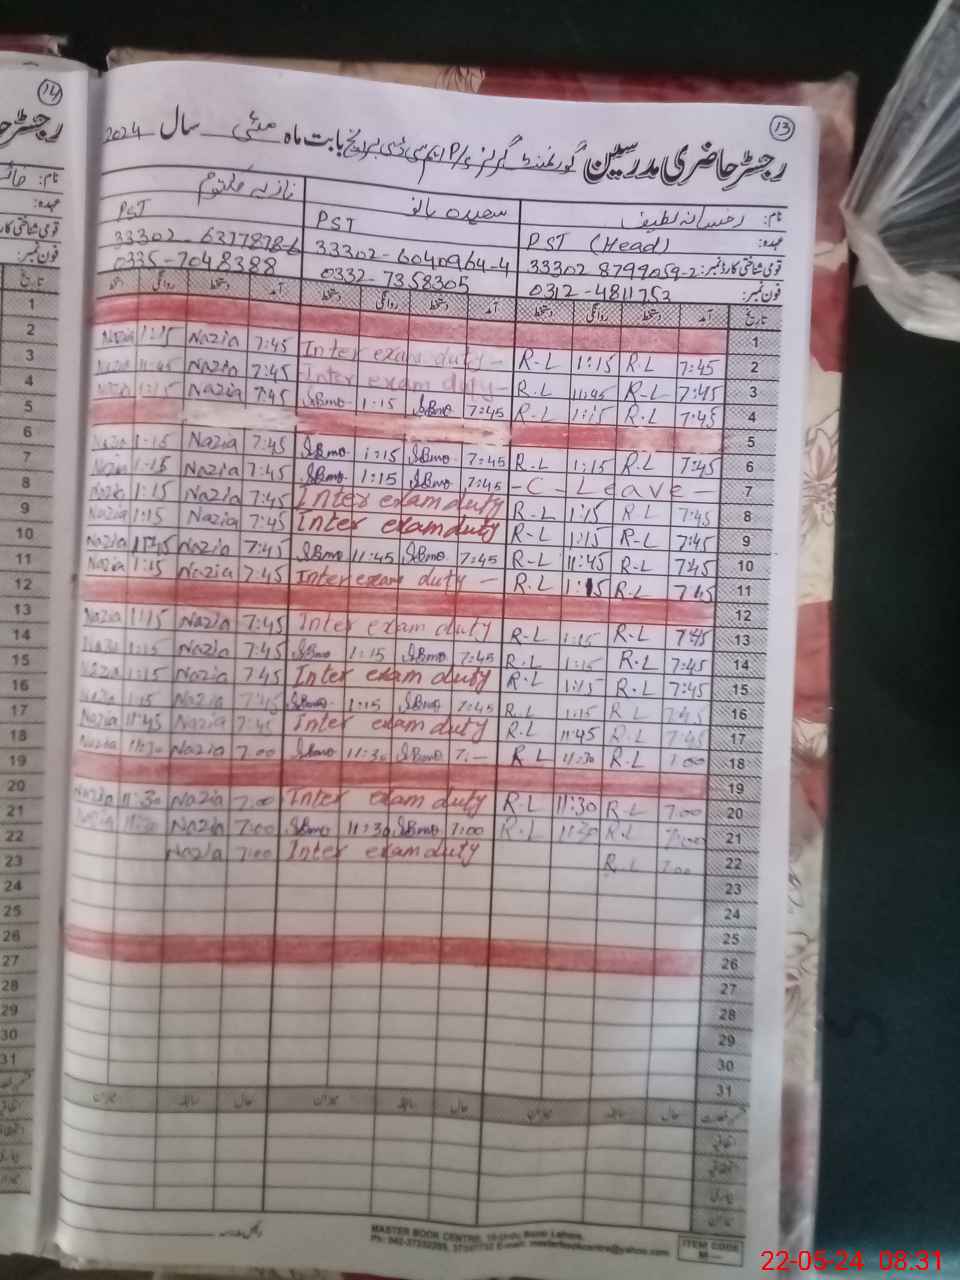 13
رجسٹر حاضری مدرسین گورنمنٹ گرلز P/S ایم سی ڈی بابت ماہ مئی سال 2024
نام: رخسانہ لطیف سعیدہ بانو نازیہ
عہدہ: PST (Head) PST PST
قومی شناختی کارڈ نمبر: 33302 8799059-2 33302-6040964-4 33302-6377878-6
فون نمبر: 0312-4811753 0332-7358305 0335-7048388
تاریخ آمد دستخط روانگی دستخط آمد دستخط روانگی دستخط آمد دستخط روانگی دستخط
1
2 7:45 R-L 1:15 R-L Inter exam duty - 7:45 Nazia 1:15 Nazia
3 7:45 R-L 11:45 R-L Inter exam duty - 7:45 Nazia 11:45 Nazia
4 7:45 R-L 1:15 R-L 7:45 SBmo 1:15 SBmo 7:45 Nazia 1:15 Nazia
5
6 7:45 R-L 1:15 R-L 7:45 SBmo 1:15 SBmo 7:45 Nazia 1:15 Nazia
7 - C - Leave - 7:45 SBmo 1:15 SBmo 7:45 Nazia 1:15 Nazia
8 7:45 R-L 1:15 R-L Inter exam duty 7:45 Nazia 1:15 Nazia
9 7:45 R-L 1:15 R-L Inter exam duty 7:45 Nazia 1:15 Nazia
10 7:45 R-L 11:45 R-L 7:45 SBmo 11:45 SBmo 7:45 Nazia 11:45 Nazia
11 7:45 R-L 1:15 R-L Inter exam duty - 7:45 Nazia 1:15 Nazia
12
13 7:45 R-L 1:15 R-L Inter exam duty 7:45 Nazia 1:15 Nazia
14 7:45 R-L 1:15 R-L 7:45 SBmo 1:15 SBmo 7:45 Nazia 1:15 Nazia
15 7:45 R-L 1:15 R-L Inter exam duty 7:45 Nazia 1:15 Nazia
16 7:45 R-L 1:15 R-L 7:45 SBmo 1:15 SBmo 7:45 Nazia 1:15 Nazia
17 7:45 R-L 11:45 R-L Inter exam duty 7:45 Nazia 11:45 Nazia
18 7:00 R-L 11:30 R-L 7:— SBmo 11:30 SBmo 7:00 Nazia 11:30 Nazia
19
20 7:00 R-L 11:30 R-L Inter exam duty 7:00 Nazia 11:30 Nazia
21 7:00 R-L 11:30 R-L 7:00 SBmo 11:30 SBmo 7:00 Nazia 11:30 Nazia
22 7:00 R-L Inter exam duty 7:00 Nazia
23
24
25
26
27
28
29
30
31
حال سابقہ میزان حال سابقہ میزان حال سابقہ میزان
اتفاقی
بیماری
میزان
MASTER BOOK CENTRE, Lahore.
ITEM CODE
14
رجسٹر
نام:
عہدہ:
قومی شناختی کارڈ نمبر:
فون نمبر:
تاریخ
1
2
3
4
5
6
7
8
9
10
11
12
13
14
15
16
17
18
19
20
21
22
23
24
25
26
27
28
29
30
31
22-05-24 08:31